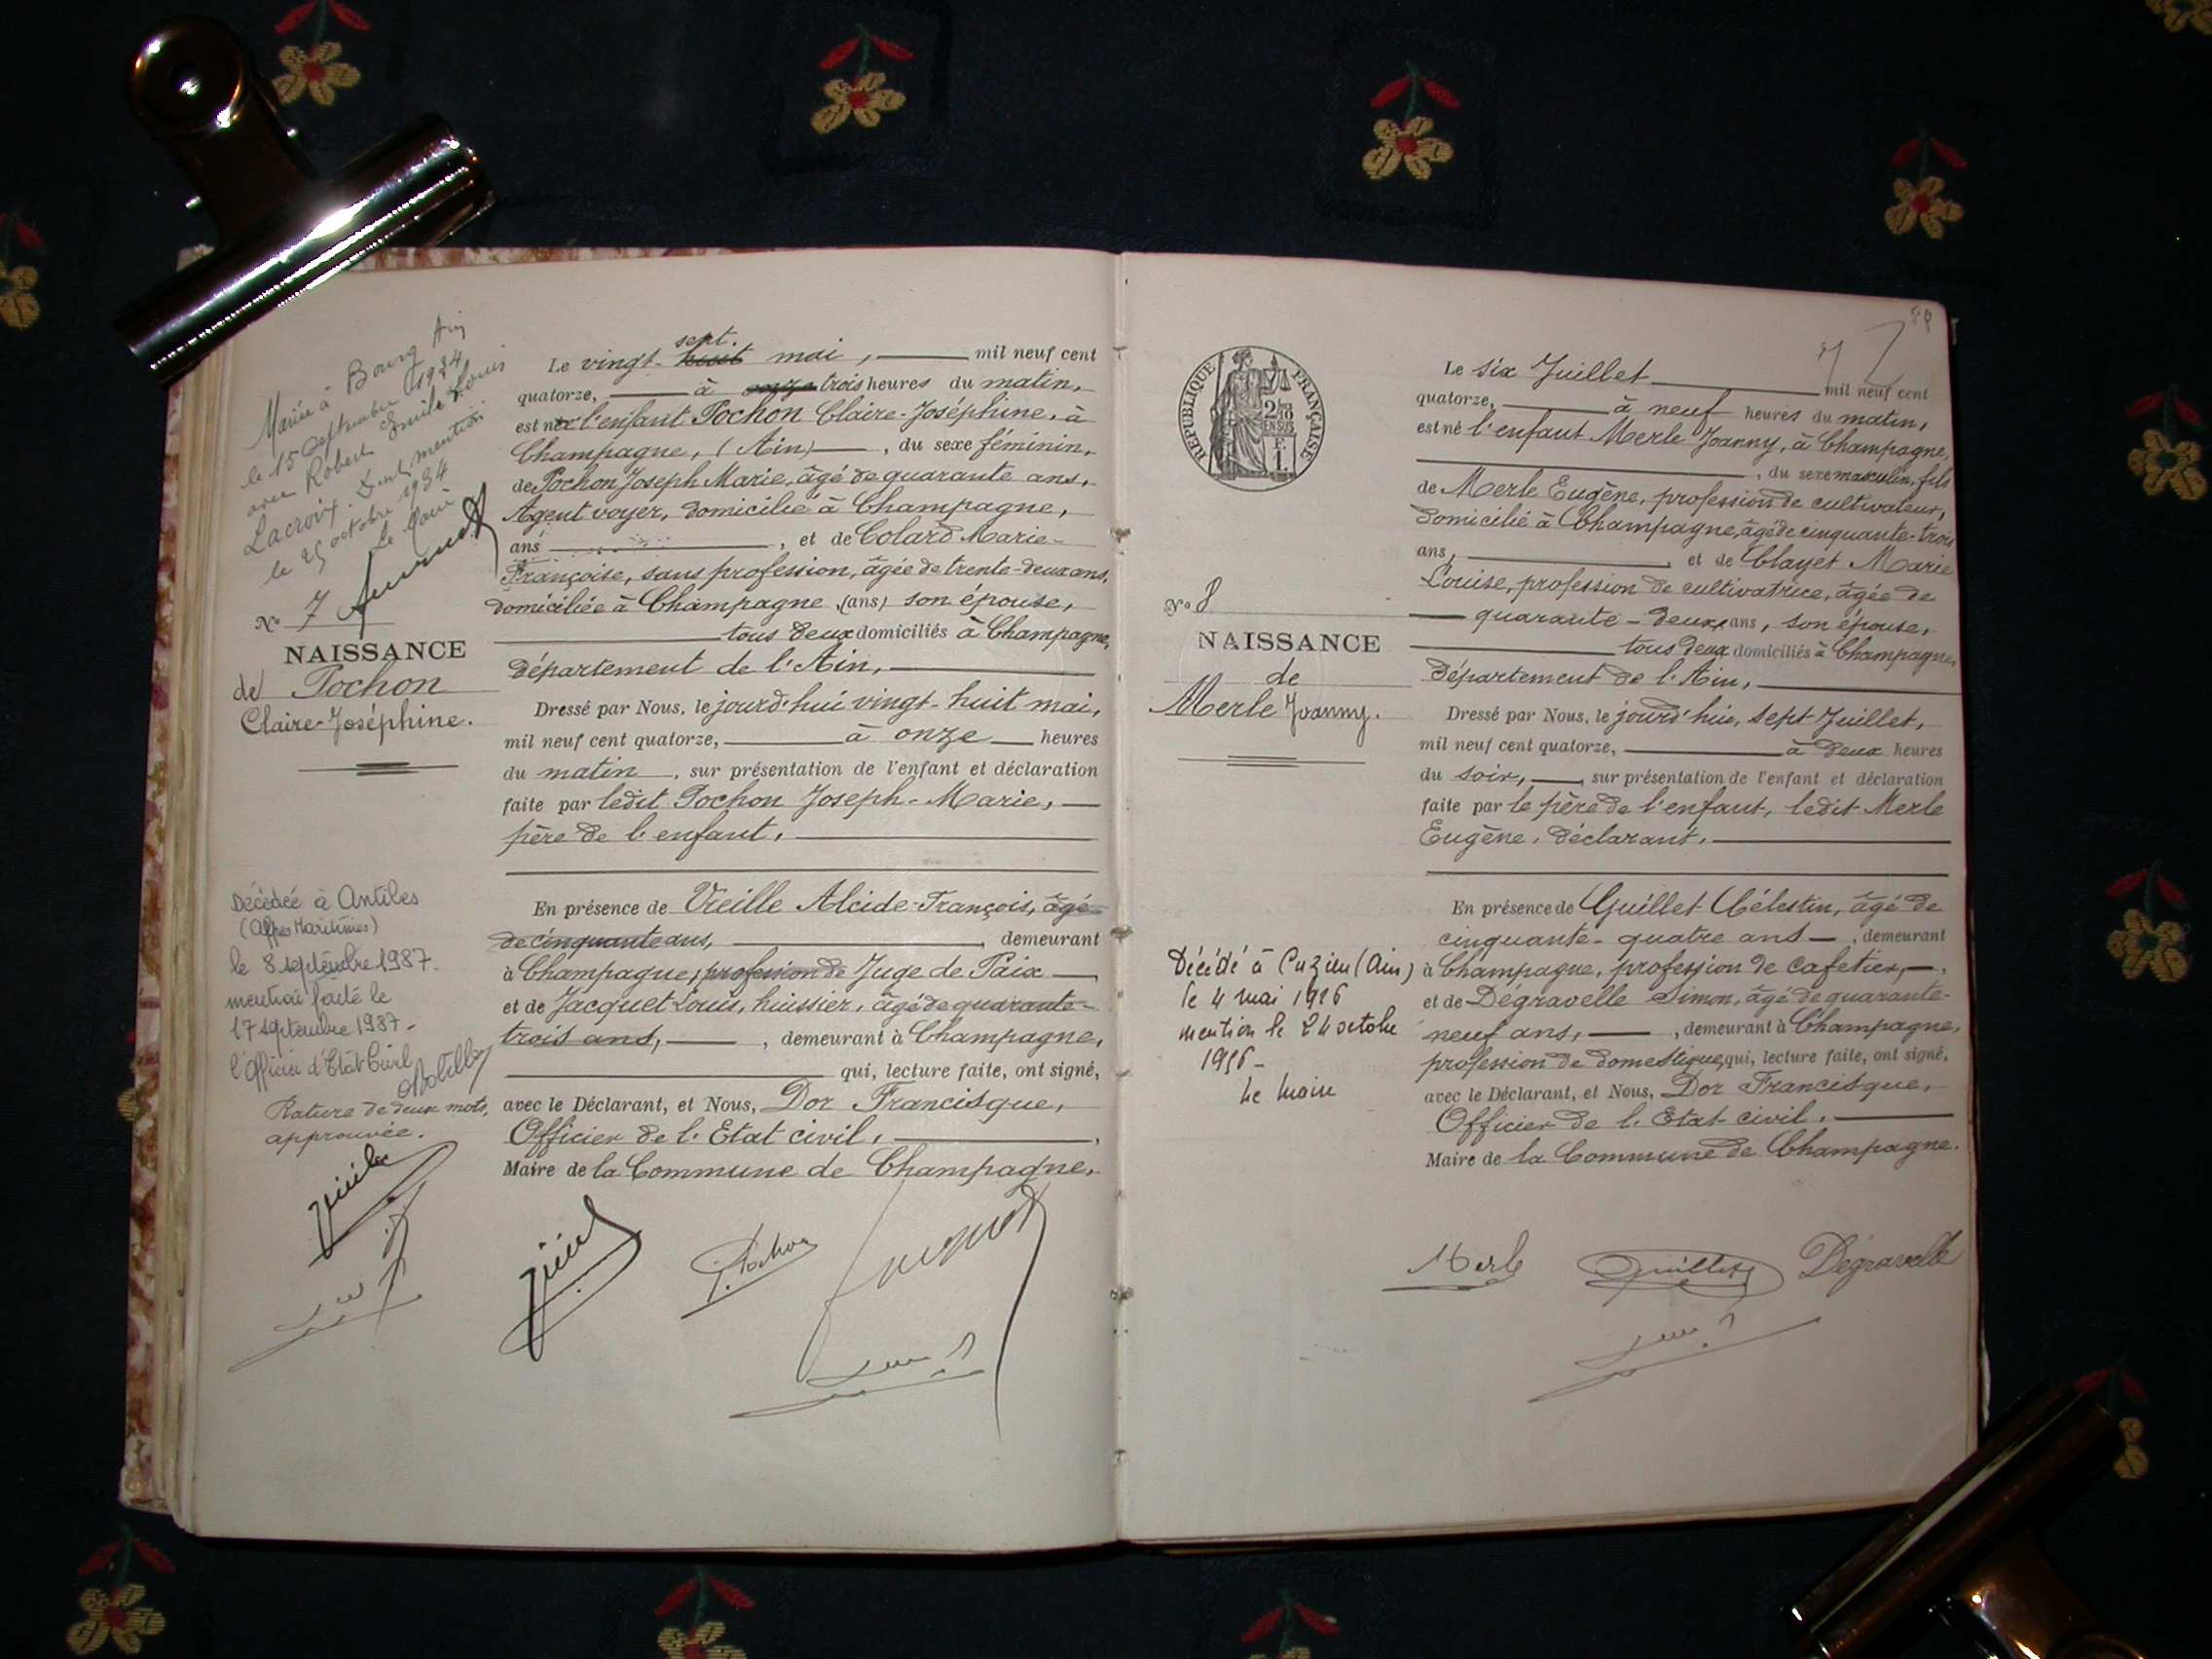 Mariée à Bourg Ain
le 15 Septembre 1934
avec Robert Emile Louis
Lacroix. Dont mention
le 25 octobre 1934
Le Maire
N° 7
NAISSANCE
de Pochon
Claire-Joséphine.
Décédée à Antibes
(Alpes Maritimes)
le 8 septembre 1987.
mention faite le
17 septembre 1987.
l'Officier d'Etat Civil
Rature de deux mots,
approuvée.
sept.
Le vingt-huit mai, mil neuf cent
quatorze, à onze trois heures du matin,
est née l'enfant Pochon Claire-Joséphine, à
Champagne, (Ain) , du sexe féminin,
de Pochon Joseph Marie, âgé de quarante ans,
Agent voyer, domicilié à Champagne,
ans , et de Colard Marie-
Françoise, sans profession, âgée de trente-deux ans,
domiciliée à Champagne, (ans) son épouse,
tous deux domiciliés à Champagne,
département de l'Ain,
Dressé par Nous, le jourd'hui vingt-huit mai,
mil neuf cent quatorze, à onze heures
du matin , sur présentation de l'enfant et déclaration
faite par ledit Pochon Joseph-Marie,
père de l'enfant,
En présence de Vieille Alcide-François, âgé
de cinquante ans, , demeurant
à Champagne, profession de Juge de Paix
et de Jacquet Louis, huissier, âgé de quarante-
trois ans, , demeurant à Champagne,
qui, lecture faite, ont signé,
avec le Déclarant, et Nous, Dor Francisque,
Officier de l'Etat civil,
Maire de la Commune de Champagne,
J. Pochon
RÉPUBLIQUE FRANÇAISE
2/10 EN SUS
N° 8
NAISSANCE
de
Merle Joanny.
Décédé à Cuzieu (Ain)
le 4 mai
mention le 24 octobre
Le Maire
Le six Juillet mil neuf cent
quatorze, à neuf heures du matin,
est né l'enfant Merle Joanny, à Champagne,
, du sexe masculin, fils
de Merle Eugène, profession de cultivateur,
domicilié à Champagne, âgé de cinquante-trois
ans, , et de Clayet Marie
Louise, profession de cultivatrice, âgée de
quarante-deux ans, son épouse,
tous deux domiciliés à Champagne,
département de l'Ain,
Dressé par Nous, le jourd'hui, sept Juillet,
mil neuf cent quatorze, à deux heures
du soir, , sur présentation de l'enfant et déclaration
faite par le père de l'enfant, ledit Merle
Eugène, déclarant,
En présence de Guillet Célestin, âgé de
cinquante-quatre ans , demeurant
à Champagne, profession de cafetier,
et de Dégravelle Simon, âgé de quarante-
neuf ans, , demeurant à Champagne,
profession de domestique, qui, lecture faite, ont signé,
avec le Déclarant, et Nous, Dor Francisque,
Officier de l'Etat civil,
Maire de la Commune de Champagne.
Merle Guillet Dégravelle